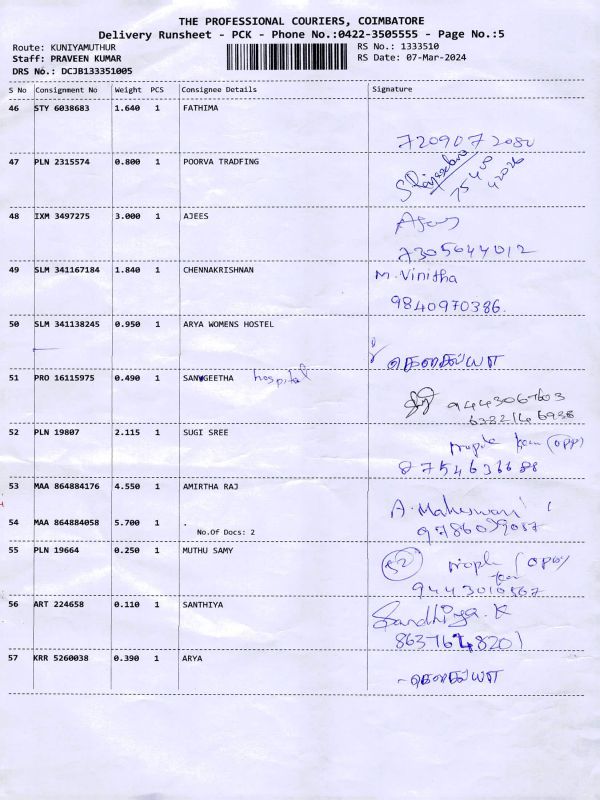 THE PROFESSIONAL COURIERS, COIMBATORE
Delivery Runsheet - PCK - Phone No.:0422-3505555 - Page No.:5
Route: KUNIYAMUTHUR RS No.: 1333510
Staff: PRAVEEN KUMAR RS Date: 07-Mar-2024
DRS No.: DCJB133351005
S No Consignment No Weight PCS Consignee Details Signature
46 STY 6038683 1.640 1 FATHIMA
7209072080
47 PLN 2315574 0.800 1 POORVA TRADFING
48 IXM 3497275 3.000 1 AJEES
7305644012
49 SLM 341167184 1.840 1 CHENNAKRISHNAN M. Vinitha
9840970386.
50 SLM 341138245 0.950 1 ARYA WOMENS HOSTEL
51 PRO 16115975 0.490 1 SANGEETHA hospital
52 PLN 19807 2.115 1 SUGI SREE
(opp)
53 MAA 864884176 4.550 1 AMIRTHA RAJ
A. Maheswari
54 MAA 864884058 5.700 1 .
No.Of Docs: 2
55 PLN 19664 0.250 1 MUTHU SAMY
52 (opp)
56 ART 224658 0.110 1 SANTHIYA
Sandhiya. K
57 KRR 5260038 0.390 1 ARYA